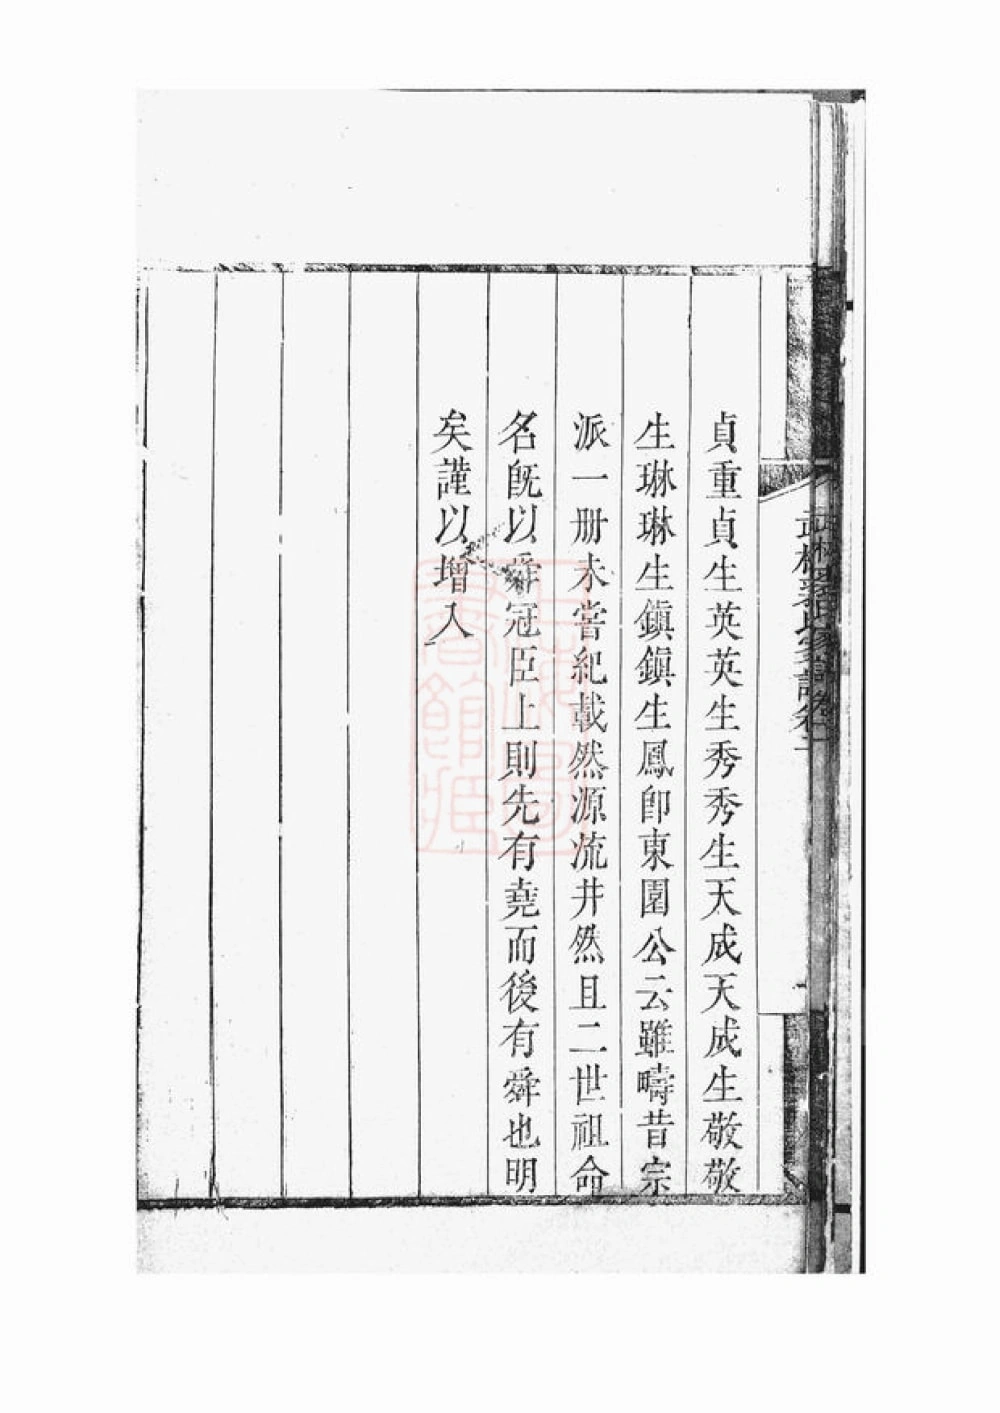 貞重貞生英英生秀秀生天成天成生敬敬
生琳琳生鎮鎮生鳳卽東園公云雖疇昔宗
派一册未嘗紀載然源流井然且二世祖命
名旣以舜冠臣上則先有堯而後有舜也明
矣謹以增入
上海圖書館藏